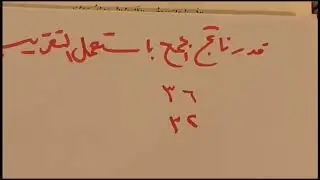 قدر ناتج الجمع باستعمال التقريب
٣٦
٣٢